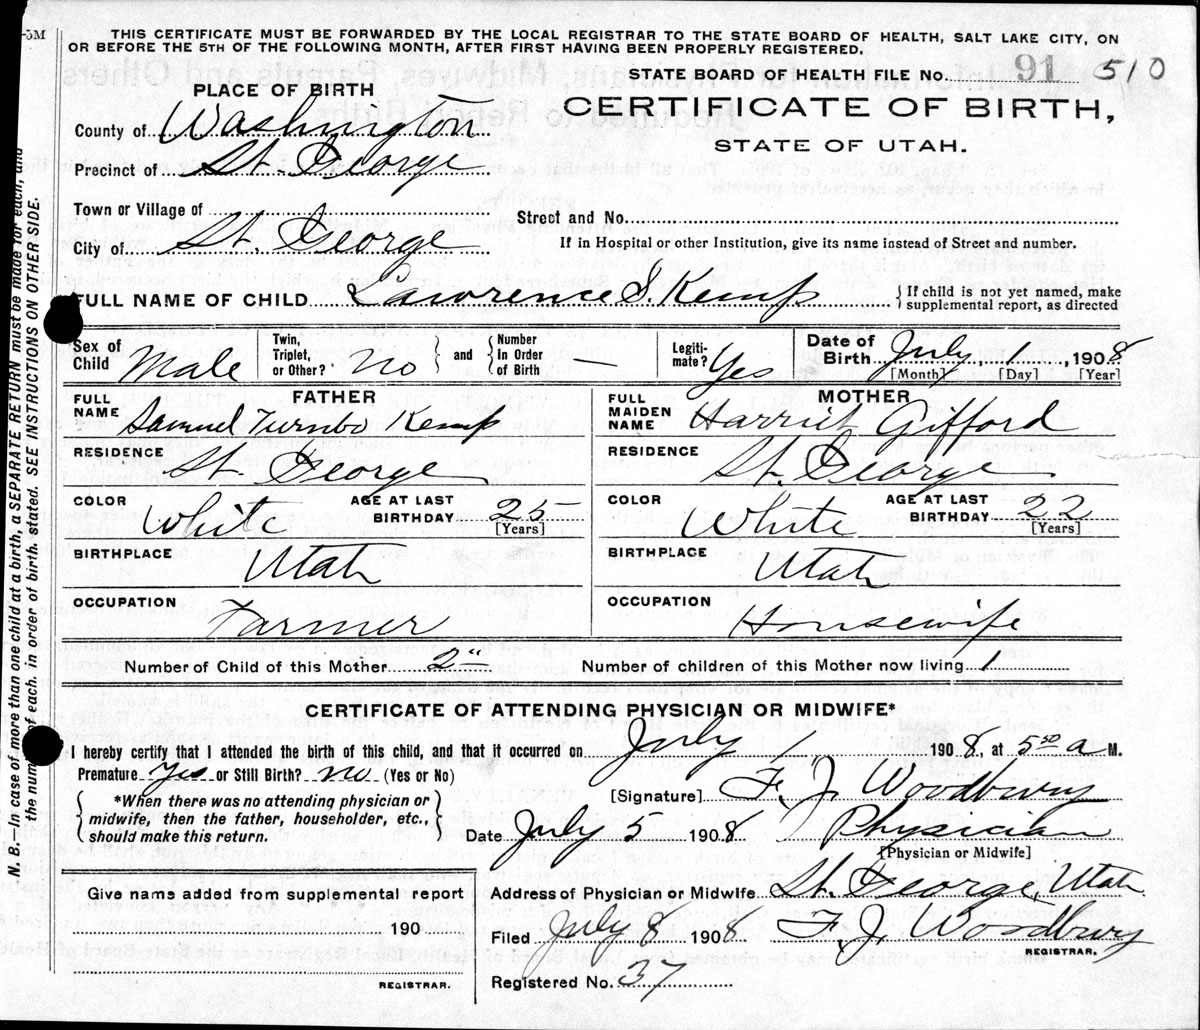 -5M
THIS CERTIFICATE MUST BE FORWARDED BY THE LOCAL REGISTRAR TO THE STATE BOARD OF HEALTH, SALT LAKE CITY, ON
OR BEFORE THE 5TH OF THE FOLLOWING MONTH, AFTER FIRST HAVING BEEN PROPERLY REGISTERED.
STATE BOARD OF HEALTH FILE No. 91 510
PLACE OF BIRTH
CERTIFICATE OF BIRTH,
STATE OF UTAH.
County of Washington
Precinct of St. George
Town or Village of
Street and No.
City of St. George
If in Hospital or other Institution, give its name instead of Street and number.
FULL NAME OF CHILD Lawrence S. Kemp { If child is not yet named, make
supplemental report, as directed
Sex of Child Male
Twin, Triplet, or Other? No } and { Number In Order of Birth —
Legiti-mate? Yes
Date of Birth July 1, 1908
[Month] [Day] [Year]
FATHER
FULL NAME Samuel Turnbo Kemp
RESIDENCE St. George
COLOR White
AGE AT LAST BIRTHDAY 25
[Years]
BIRTHPLACE Utah
OCCUPATION Farmer
MOTHER
FULL MAIDEN NAME Harriet Gifford
RESIDENCE St. George
COLOR White
AGE AT LAST BIRTHDAY 22
[Years]
BIRTHPLACE Utah
OCCUPATION Housewife
Number of Child of this Mother 2"
Number of children of this Mother now living 1
CERTIFICATE OF ATTENDING PHYSICIAN OR MIDWIFE*
I hereby certify that I attended the birth of this child, and that it occurred on July 1 1908, at 5 a M.
Premature Yes or Still Birth? no (Yes or No)
[Signature] F. J. Woodbury
{ *When there was no attending physician or
midwife, then the father, householder, etc.,
should make this return. }
Date July 5 1908
Physician
[Physician or Midwife]
Address of Physician or Midwife St. George, Utah
Give name added from supplemental report
190
REGISTRAR.
Filed July 8 1908
F. J. Woodbury
REGISTRAR.
Registered No. 37
N. B.—In case of more than one child at a birth, a SEPARATE RETURN must be made for each, and
the number of each, in order of birth, stated. SEE INSTRUCTIONS ON OTHER SIDE.